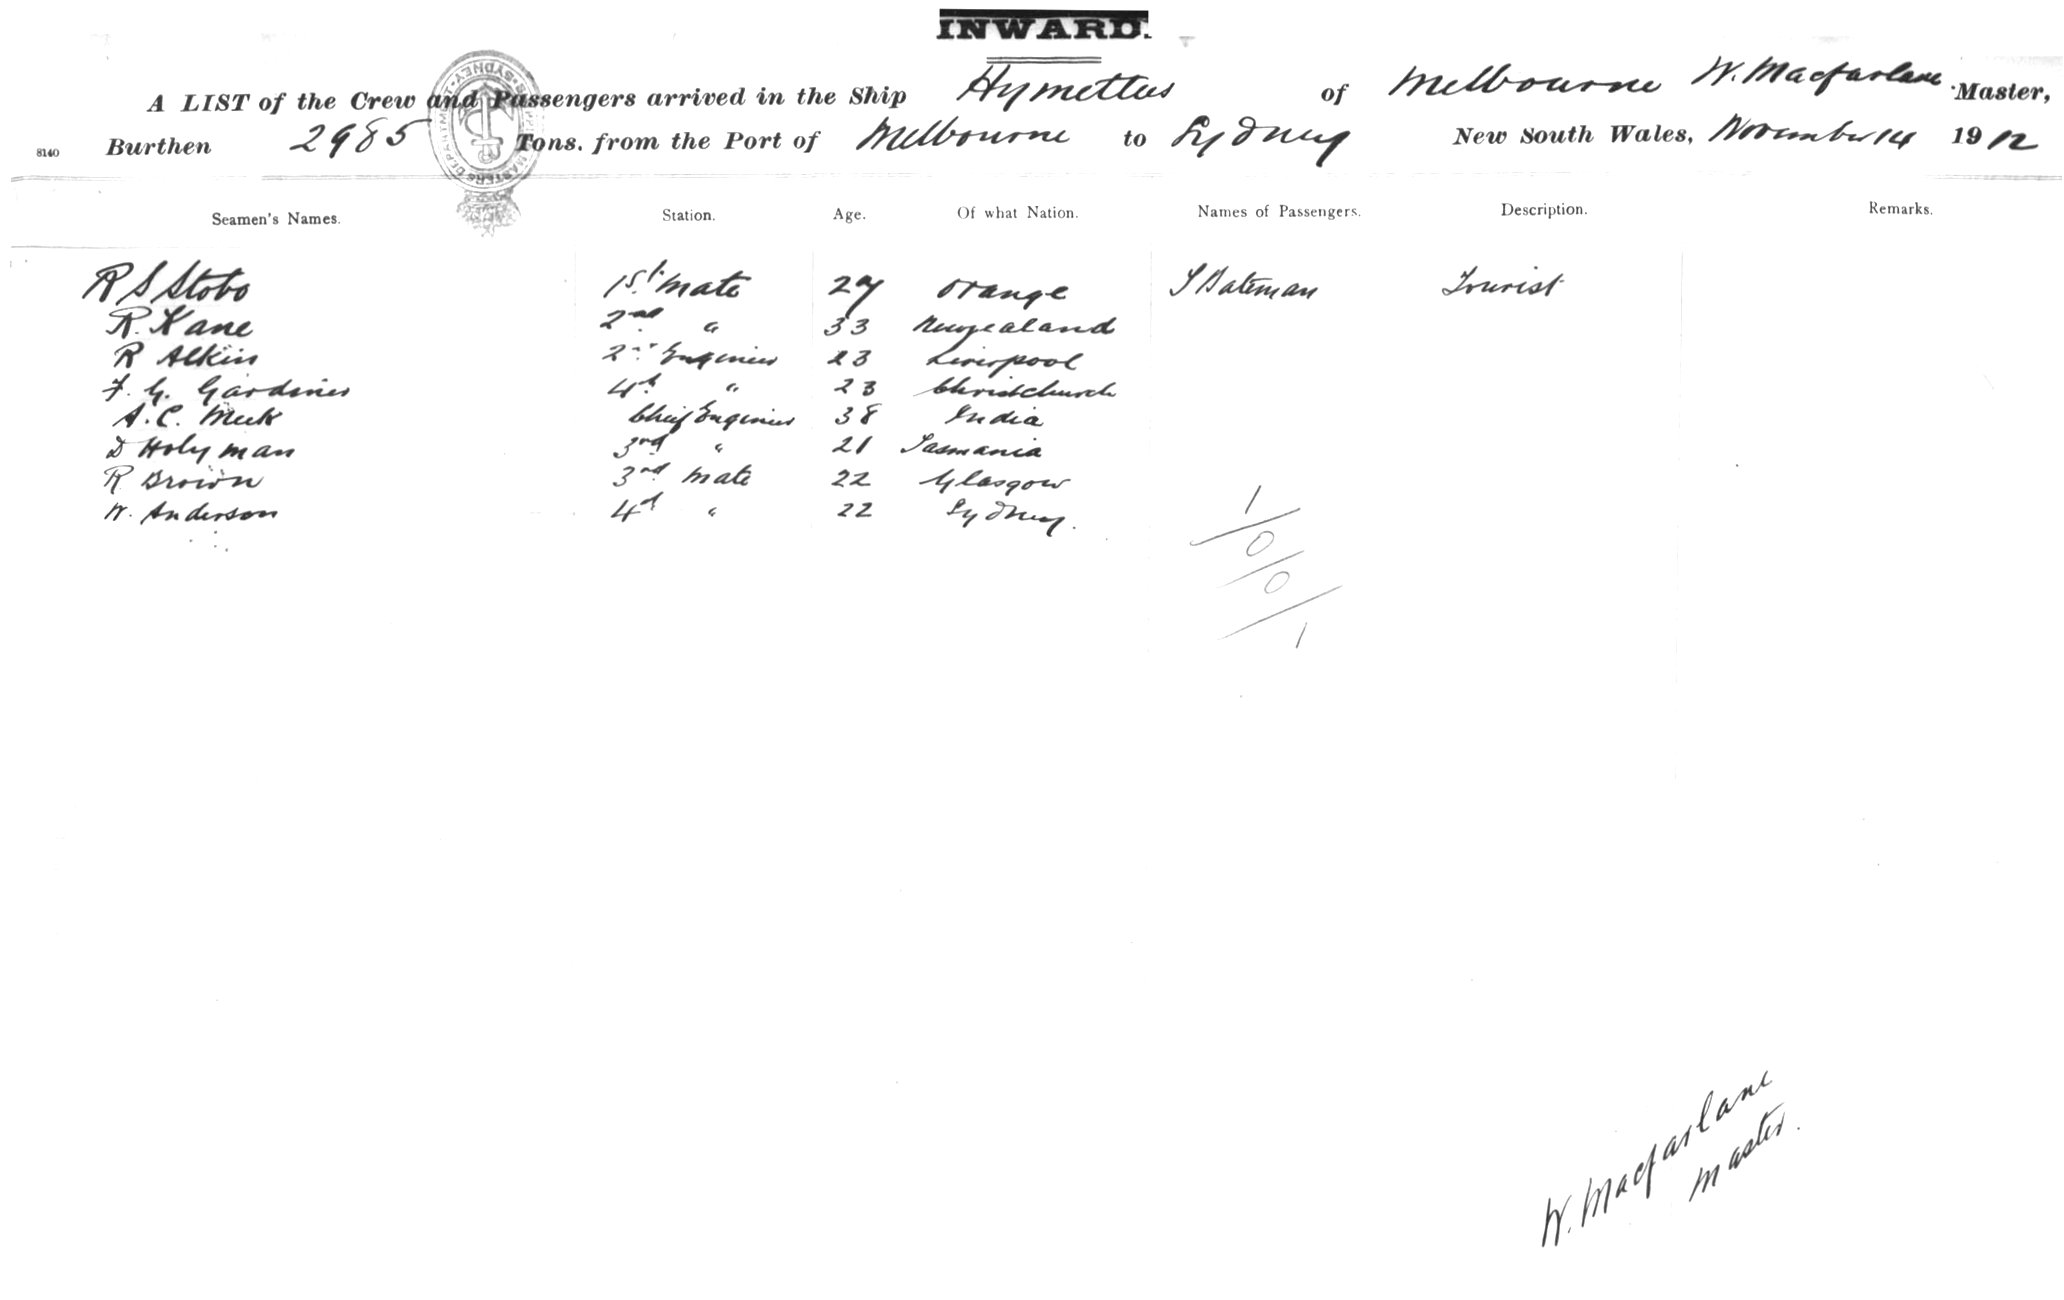 INWARD.
A LIST of the Crew and Passengers arrived in the Ship Hymettus of Melbourne W. Macfarlane Master,
8140 Burthen 2985 Tons. from the Port of Melbourne to Sydney New South Wales, November 14 1912
SHIPPING MASTERS DEPARTMENT SYDNEY
Seamen's Names. Station. Age. Of what Nation. Names of Passengers. Description. Remarks.
R S Stobo 1st mate 27 Orange S Bateman Tourist
R. Kane 2nd " 33 Newzealand
R Alkin 2nd Engineer 23 Liverpool
F. G. Gardiner 4th " 23 Christchurch
A. C. Meek Chief Engineer 38 India
D Holyman 3rd " 21 Tasmania
R Brown 3rd mate 22 Glasgow
W. Anderson 4th " 22 Sydney.
1
0
0
1
W. Macfarlane
Master.